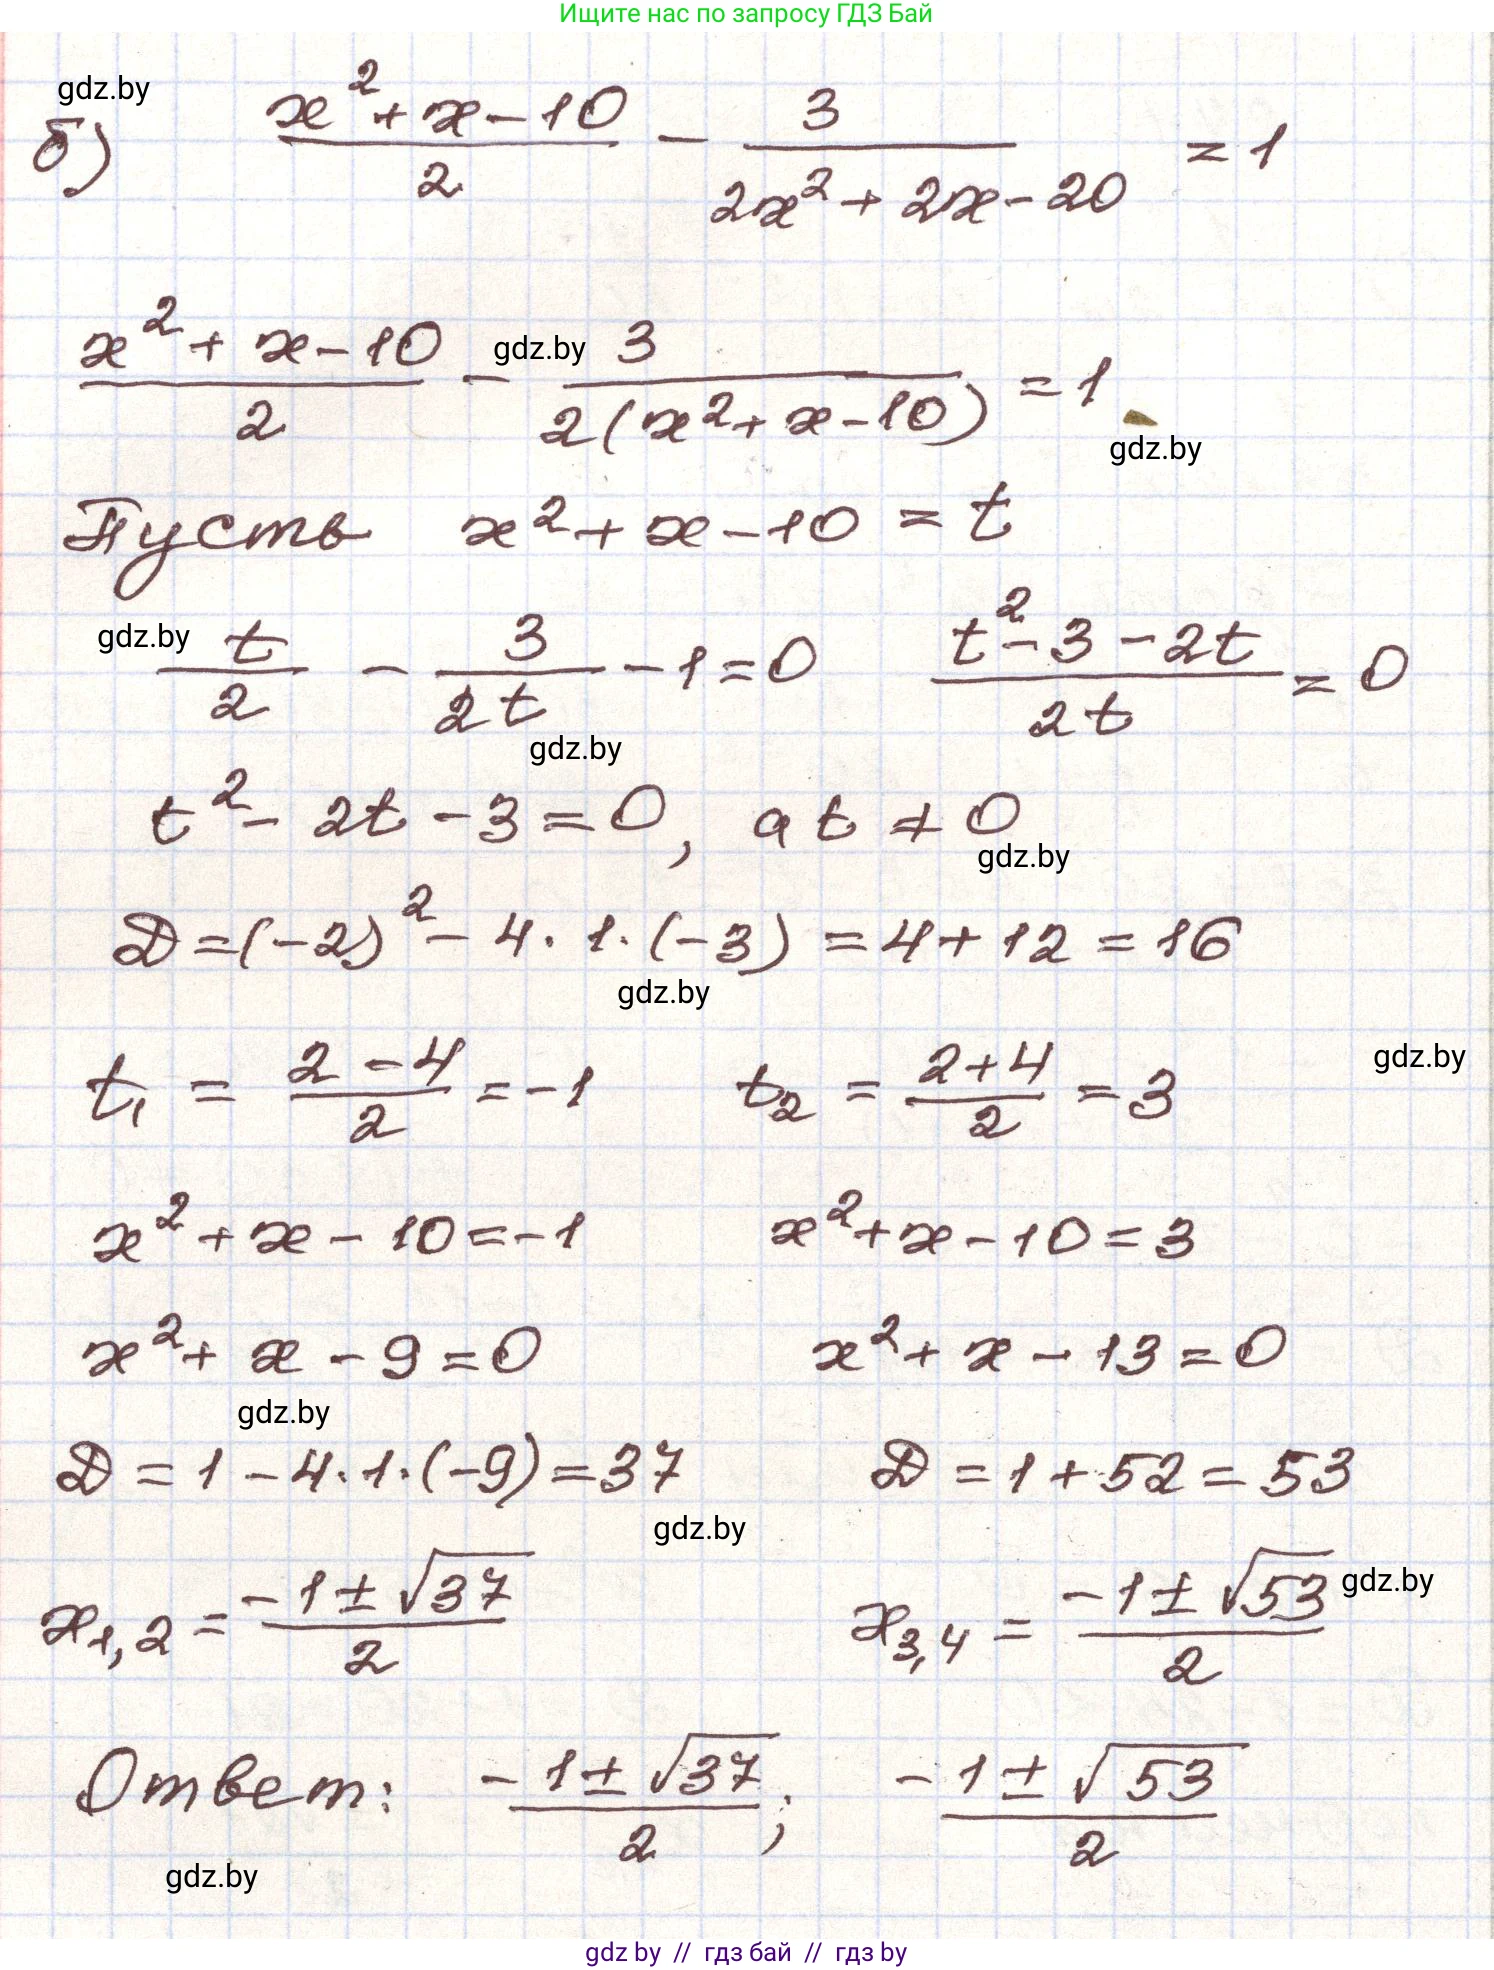 Ищите нас по запросу ГДЗ Бай
gdz.by
б) (x² + x - 10)/2 - 3/(2x² + 2x - 20) = 1
(x² + x - 10)/2 - 3/(2(x² + x - 10)) = 1
gdz.by
gdz.by
Пусть x² + x - 10 = t
gdz.by
t/2 - 3/(2t) - 1 = 0 (t² - 3 - 2t)/(2t) = 0
gdz.by
t² - 2t - 3 = 0, а t ≠ 0
gdz.by
D = (-2)² - 4 · 1 · (-3) = 4 + 12 = 16
gdz.by
t₁ = (2 - 4)/2 = -1 t₂ = (2 + 4)/2 = 3
gdz.by
x² + x - 10 = -1 x² + x - 10 = 3
x² + x - 9 = 0 x² + x - 13 = 0
gdz.by
D = 1 - 4 · 1 · (-9) = 37 D = 1 + 52 = 53
gdz.by
x₁,₂ = (-1 ± √37)/2 x₃,₄ = (-1 ± √53)/2
gdz.by
Ответ: (-1 ± √37)/2; (-1 ± √53)/2
gdz.by
gdz by // гдз бай // гдз by